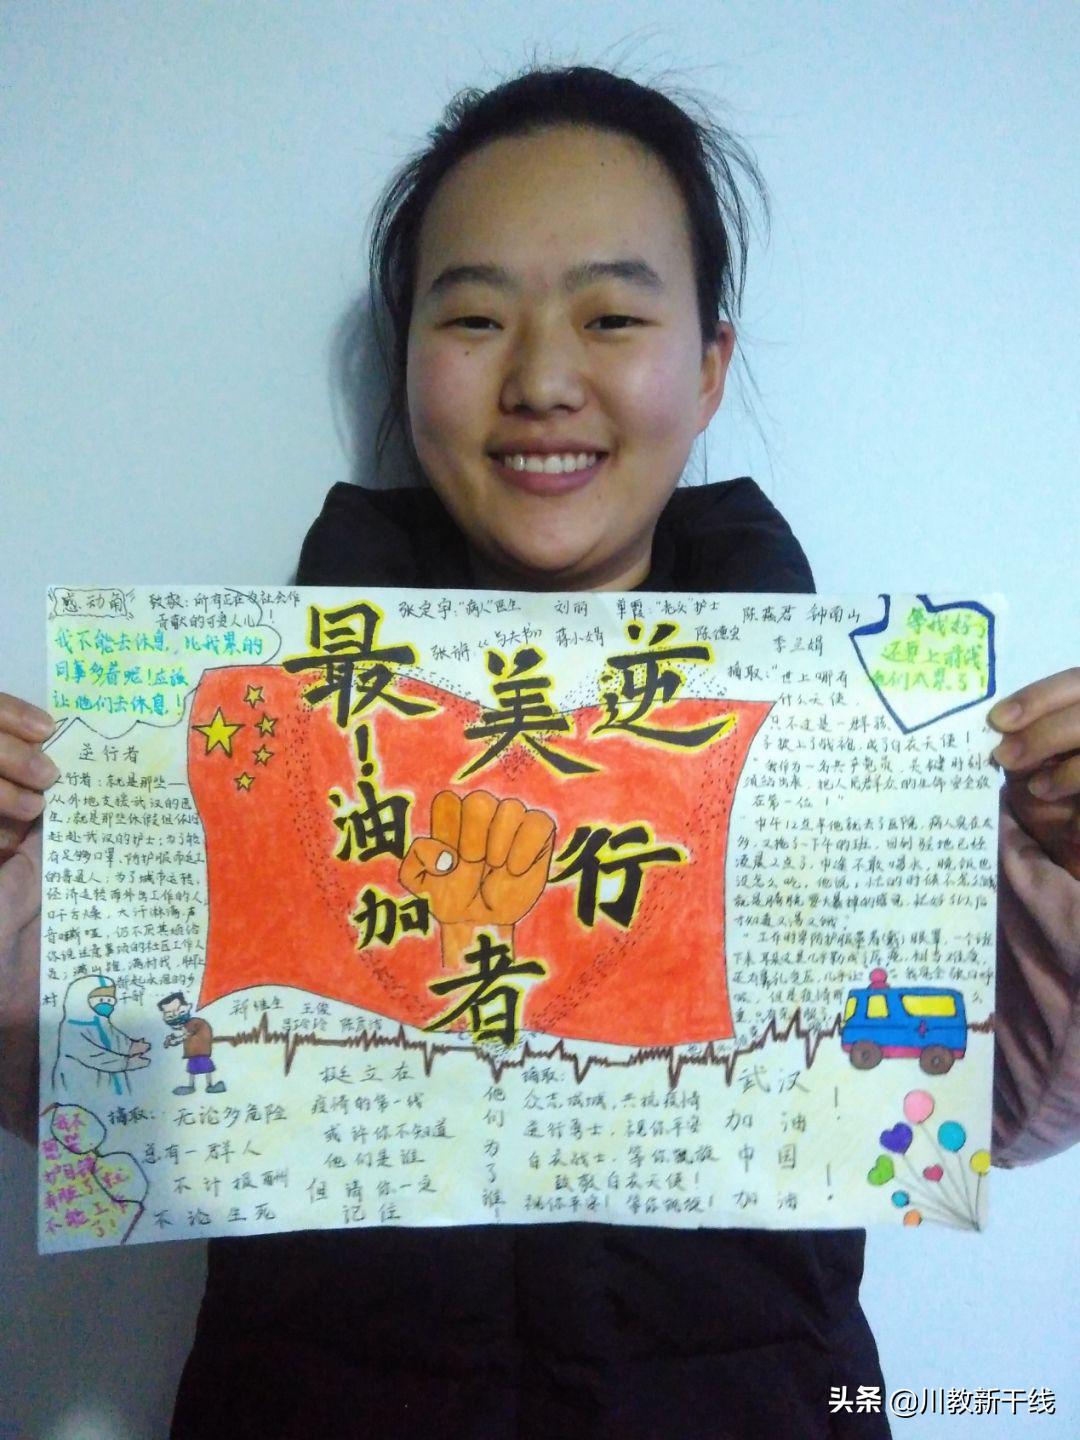 感动角
致敬：所有正在为社会作
贡献的可爱人儿！
我不能去休息，比我累的
同事多着呢！应该
让他们去休息！
张定宇："病人"医生 刘丽 单霞："光头"护士 陈燕君 钟南山
蒋小娟 陈德宝 李兰娟
等我好了
还要上前线
他们太累了！
最美逆行者
加油！
逆行者
行者：就是那些
从外地支援武汉的医
生；就是那些休假返
赶赴武汉的护士；为了能
有足够口罩、防护服而赶工
的普通人；为了城市运转、
经济运转而外出工作的人
口干舌燥，大汗淋漓，声
音嘶哑，仍不厌其烦给
你说注意事项的社区工作人
员；满山跑，满村找，肚上
村干部
摘取："世上哪有
什么天使，
只不过是一群孩
子换上了战袍，成了白衣天使！
"我作为一名共产党员，关键时刻
须站出来，把人民群众的生命安全放
在第一位！"
"中午12点半他就去了医院，病人实在太
多，又拖了一下午的班，回到驻地已经
凌晨2点了，中途不敢喝水，晚饭也
没怎么吃，他说，忙的时候不怎么
才知道又渴又饿"
郑继生 王俊
吕玲玲 陈彦清
摘取：无论多危险
总有一群人
不计报酬
不论生死
挺立在
疫情的第一线
或许你不知道
他们是谁
但请你一定
记住
他们为了谁！
摘取：
众志成城，共抗疫情
逆行勇士，祝你平安
白衣战士，等你凯旋
致敬白衣天使！
祝你平安！等你凯旋！
武汉
加油！
中国
加油！
头条 @川教新干线